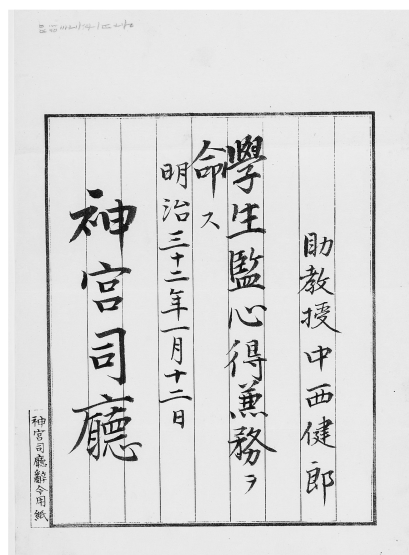 助教授中西健郎
學生監心得兼務ヲ
命ス
明治三十二年一月十二日
神宮司廳
神宮司廳辭令用紙